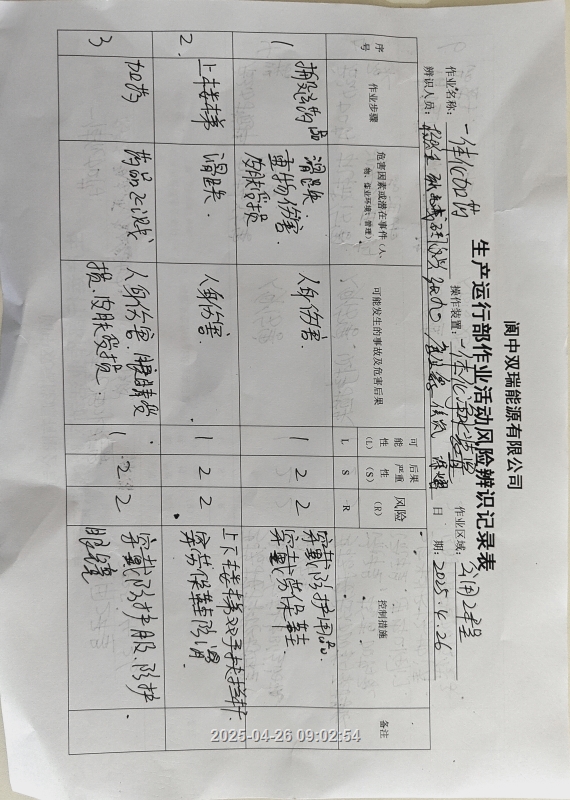 阆中双瑞能源有限公司
生产运行部作业活动风险辨识记录表
作业名称：一体化加药 操作装置：一体化净水装置 作业区域：公用工程
辨识人员： 日 期：2025.4.26
序号 作业步骤 危害因素或潜在事件（人、物、作业环境、管理） 可能发生的事故及危害后果 可能性（L） 后果严重性（S） 风险（R） 控制措施 备注
L S R
1 搬运药品 滑跌. 重物伤害. 皮肤容损 人身伤害. 1 2 2 穿戴防护用品. 穿戴劳保鞋
2. 上楼梯 滑跌. 人身伤害. 1 2 2 上下楼梯双手扶栏杆. 穿劳保鞋防滑
3 加药 药品飞溅 人身伤害 眼睛受损. 皮肤受损. 1 2 2 穿戴防护服. 防护眼镜.
2025-04-26 09:02:54